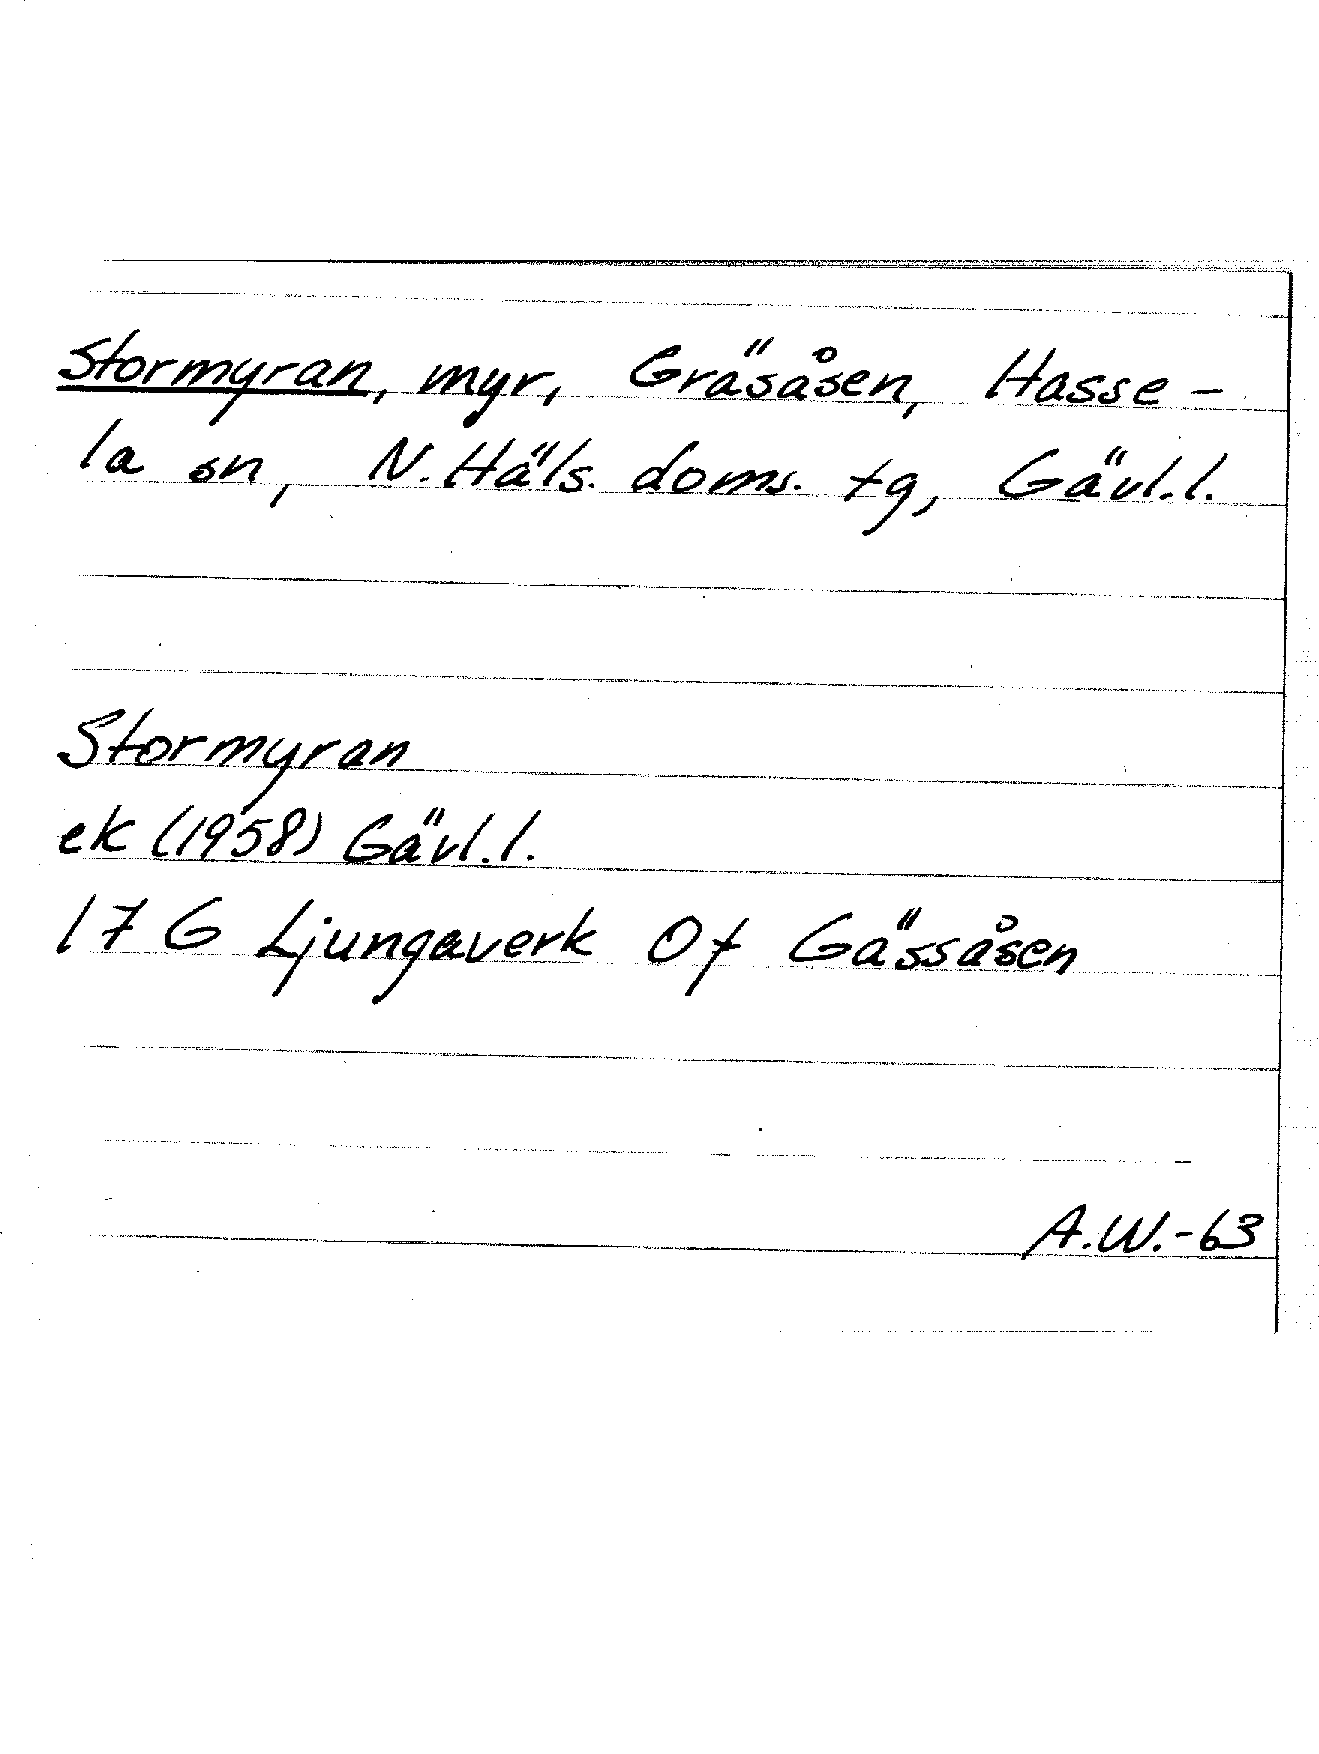 Stormyran, myr, Gräsåsen, Hasse-
la sn, N. Häls. doms. tg, Gävl. l.
Stormyran
ek (1958) Gävl. l.
17 G Ljungaverk Of Gässåsen
A.W.-63